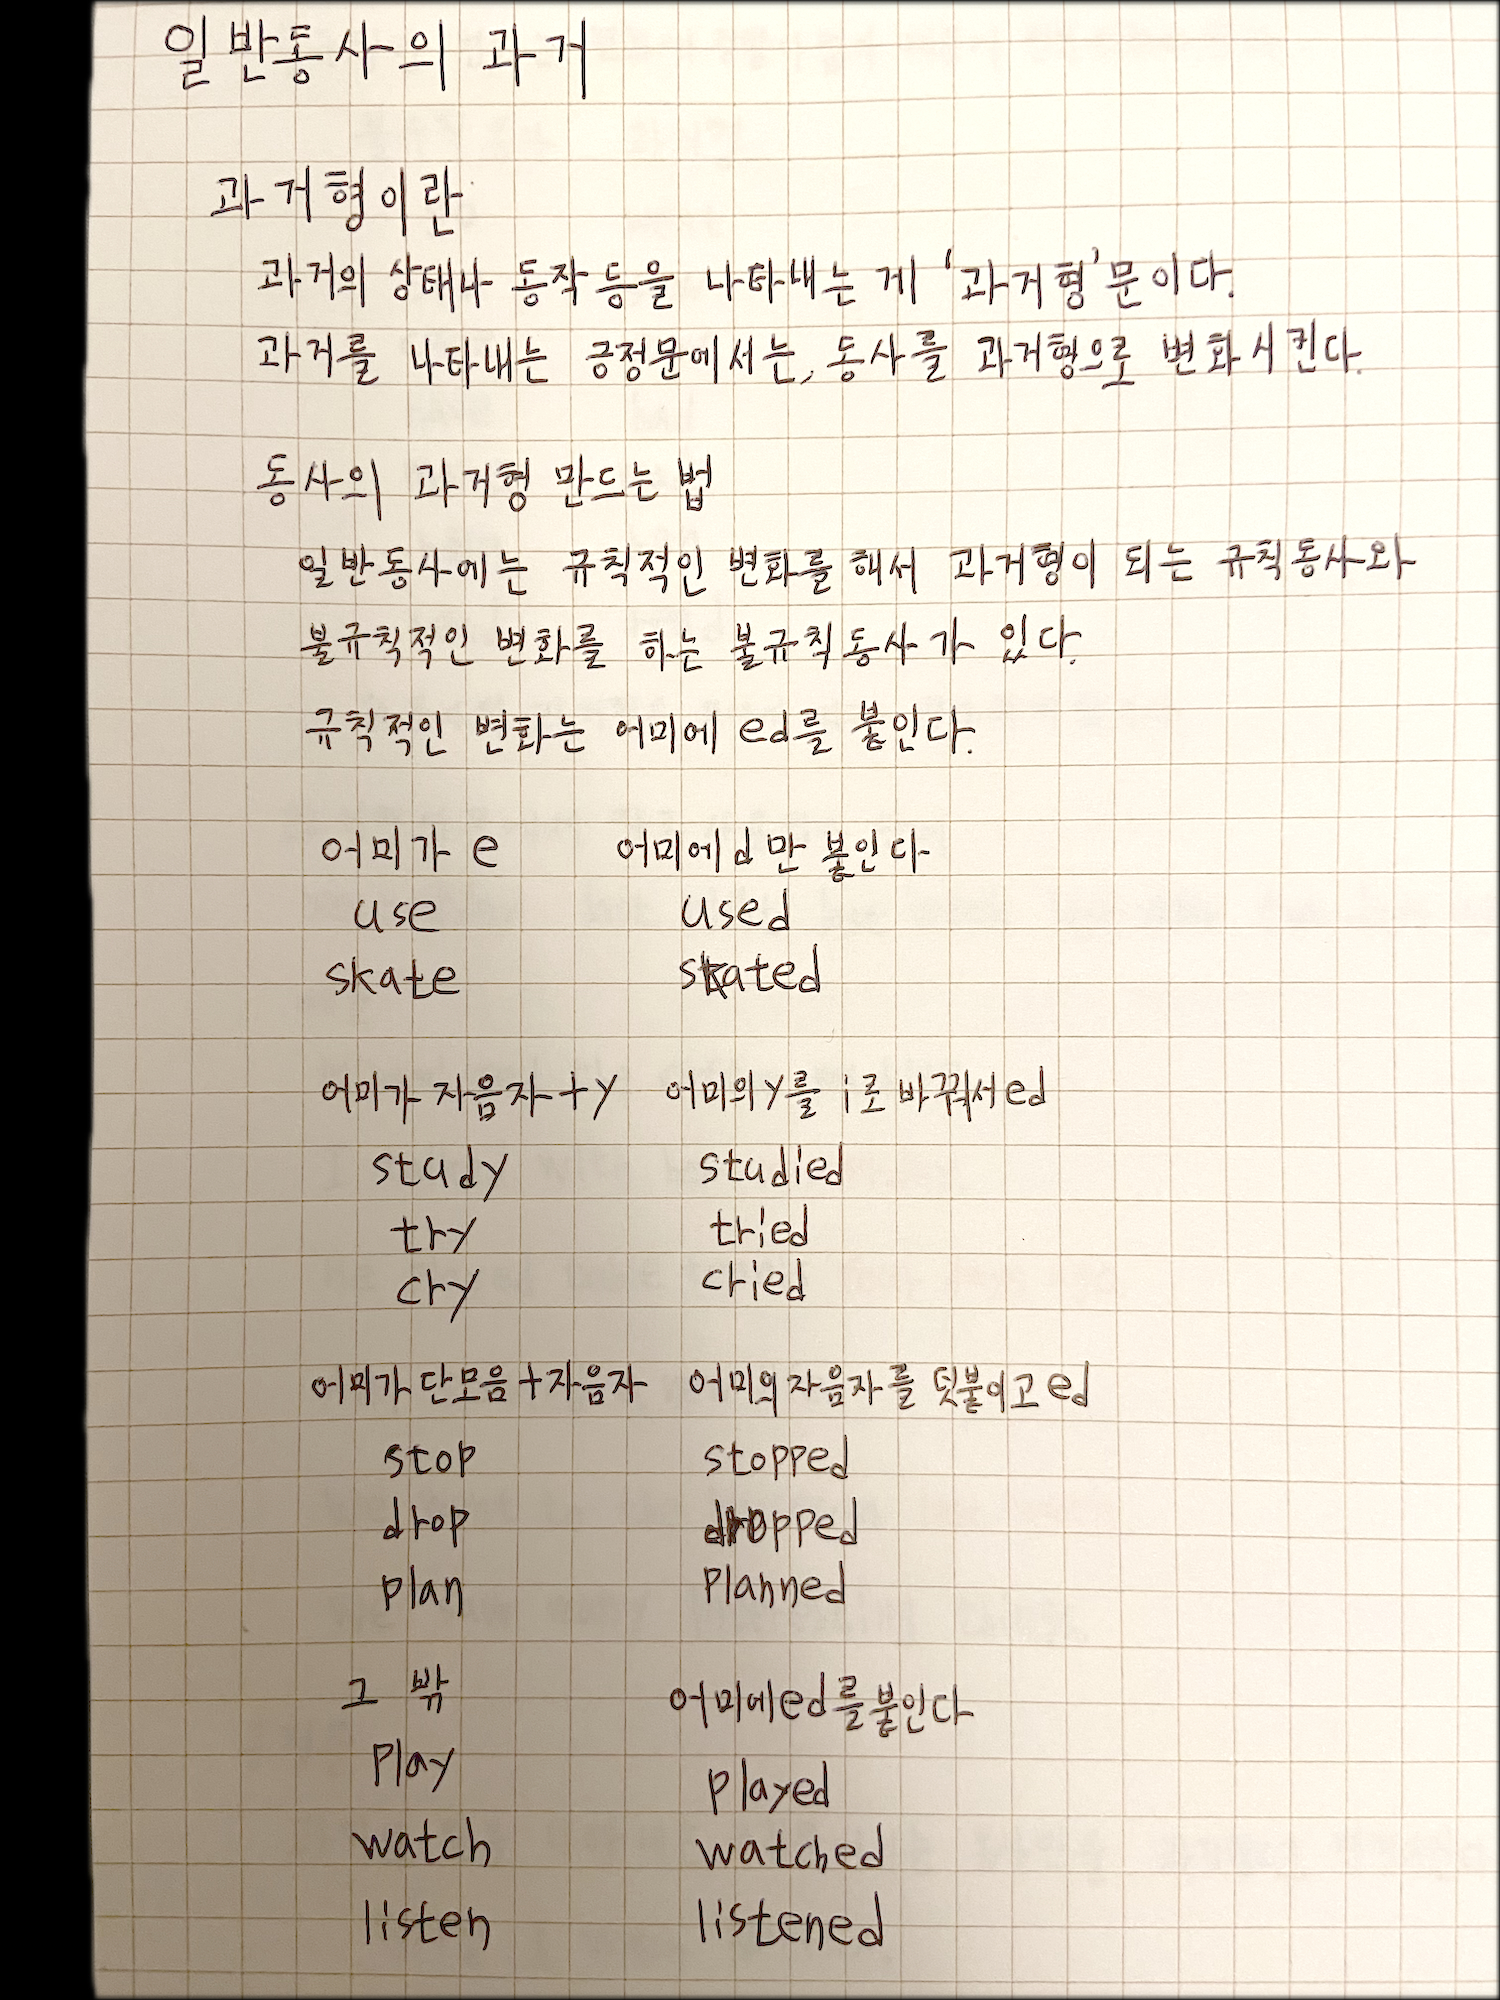 일반동사의 과거
과거형이란
과거의 상태나 동작 등을 나타내는 게 '과거형'문이다.
과거를 나타내는 긍정문에서는, 동사를 과거형으로 변화시킨다.
동사의 과거형 만드는 법
일반동사에는 규칙적인 변화를 해서 과거형이 되는 규칙동사와
불규칙적인 변화를 하는 불규칙동사가 있다.
규칙적인 변화는 어미에 ed를 붙인다.
어미가 e 어미에 d만 붙인다
use used
skate skated
어미가 자음자+y 어미의 y를 i로 바꿔서 ed
study studied
try tried
cry cried
어미가 단모음+자음자 어미의 자음자를 덧붙이고 ed
stop stopped
drop dropped
plan planned
그 밖 어미에 ed를 붙인다
play played
watch watched
listen listened